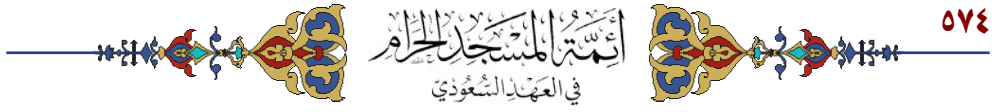 ٥٧٤
أَئِمَّةُ المَسْجَدِ الحَرَامِ
في العَهْدِ السُّعُوْدِيّ